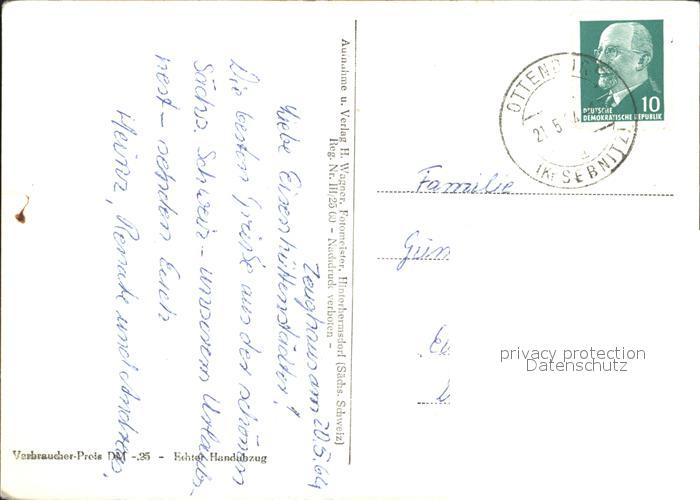 Zeughaus am 20.5.64
Liebe Eisenhüttenstädter!
Die besten Grüße aus der schönen
Sächs. Schweiz - unserem Urlaubs-
nest - senden Euch
Heinz, Renate und Andreas,
Aufnahme u. Verlag H. Wagner, Fotomeister, Hinterhermsdorf (Sächs. Schweiz)
Reg. Nr. III/25 60 - Nachdruck verboten -
Verbraucher-Preis DM -,25 - Echter Handabzug
10
DEUTSCHE
DEMOKRATISCHE REPUBLIK
21.5.
(Kr SEBNITZ)
Familie
Gün
privacy protection
Datenschutz